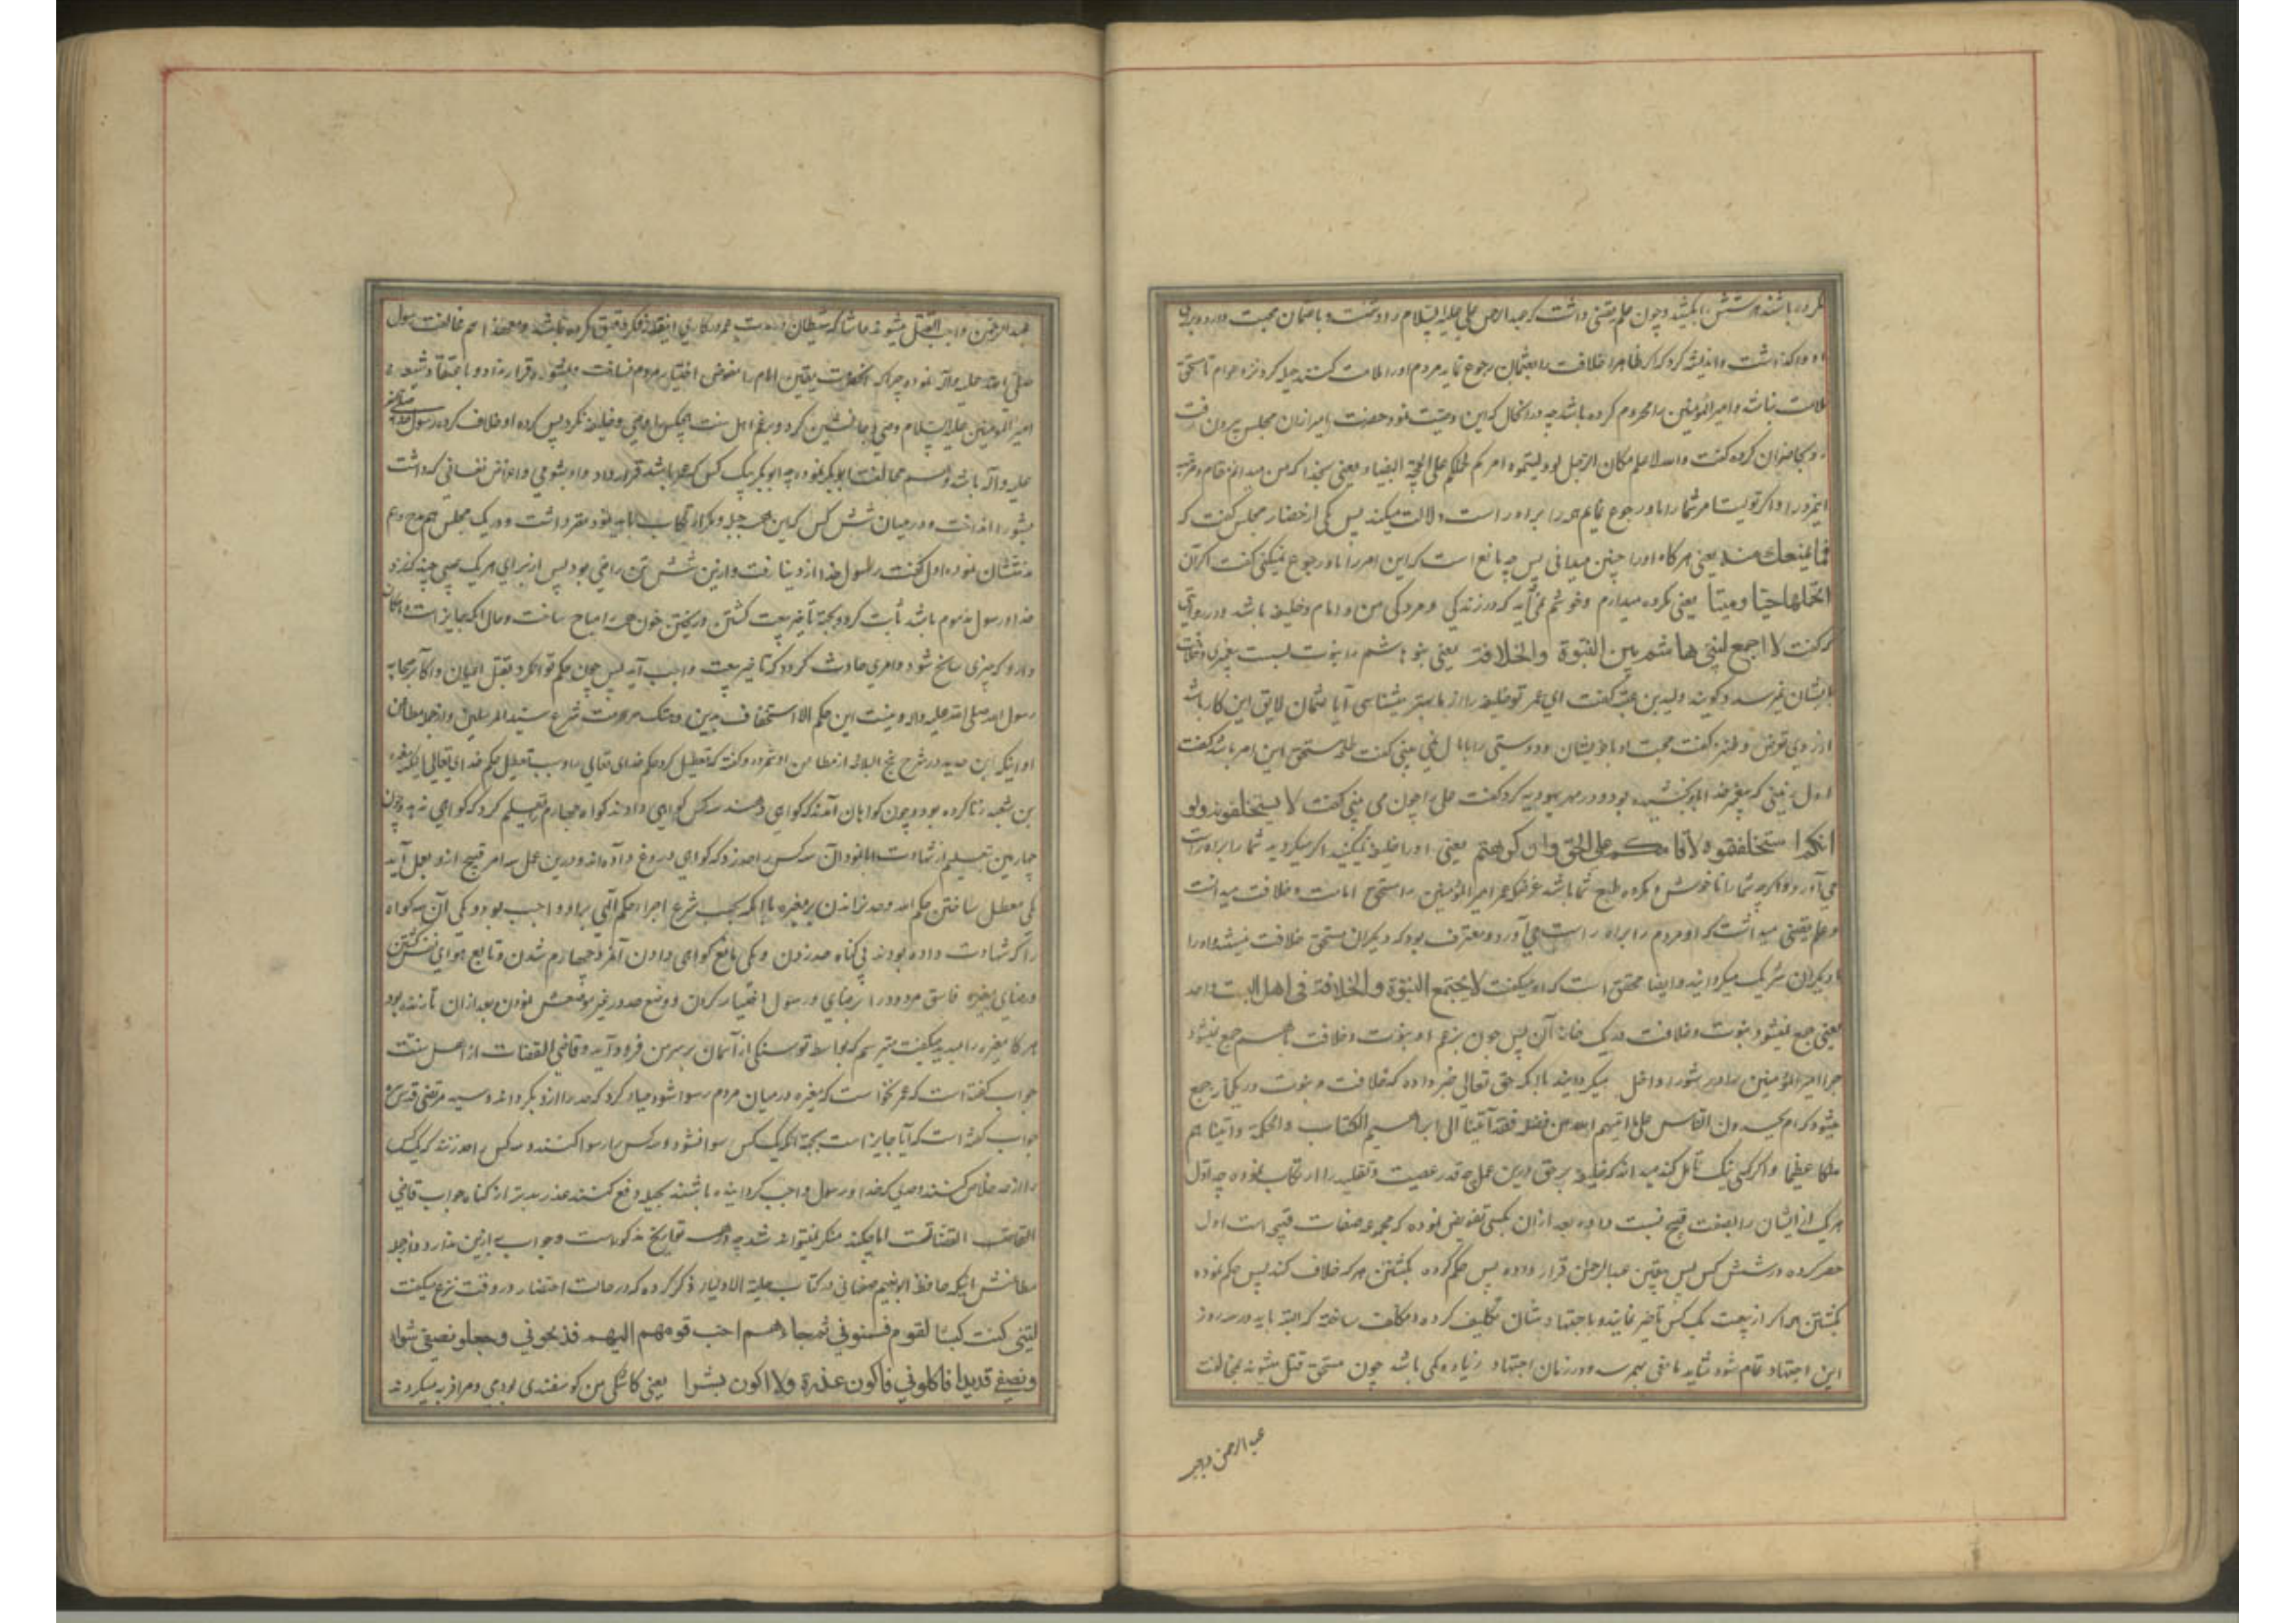 نکرده باشند هر شش را بکشند و چون علم یقینی داشت که عبدالرحمن علی علیه السلام را دوست و با عثمان محبت دارد
او واگذاشت و اندیشه کرد که اگر ظاهرا خلافت را بعثمان رجوع نماید مردم او را ملامت کنند حیله کرد نزد عوام تا مستحق
ملامت نباشد و امیرالمؤمنین را محروم کرده باشد چه در آنحال که این وصیت نمود حضرت امیر از آن مجلس بیرون رفت
رو بحاضران کرده گفت والله لاعلم مکان الرجل لو ولیتموه امرکم لحملکم علی المحجة البیضاء یعنی بخدا که من میدانم مقام و مرتبه
اینمرد را و اگر تولیت امر شما را باو رجوع نمایم همه را براه راست دلالت میکند پس یکی از حضار مجلس گفت که
فما یمنعک منه یعنی هرگاه او را چنین میدانی پس چه مانع است که این امر را باو رجوع نمیکنی گفت اکره ان
اتحملها حیا و میتا یعنی مکروه میدارم و خوشم نمی آید که در زندگی و مردگی من او امام و خلیفه باشد و در روایتی
که گفت لا اجمع لبنی هاشم بین النبوة والخلافة یعنی بنو هاشم را نبوت بست پیغمبری و خلافت
بایشان نمیرسد و گویند ولید بن عتبه گفت ای عمر تو خلیفه را از ما بهتر میشناسی آیا عثمان لایق این کار باشد
از روی تعرض و طنز گفت محبت او با خویشان و دوستی را با مال نمی بینی گفت طلحه مستحق این امر باشد گفت
اول زنی که پیغمبر خدا بود و در مهر یهودیه کرد گفت علی را چون می بینی گفت لا یستخلفونه ولو
انکم استخلفتموه لاقامکم علی الحق وان کرهتم یعنی او را خلیفه نمیکنید اگر میکردید شما را براه راست
می آورد و اگرچه شما را ناخوش و مکروه طبع شما باشد غرضکه عمر امیرالمؤمنین را مستحق امامت و خلافت میدانست
و علم یقینی میداشت که او مردم را براه راست می آورد و معترف بود که دیگران مستحق خلافت نیستند و او را
با دیگران شریک میگردانید و ایضا محقق است که او میگفت لا یجتمع النبوة والخلافة فی اهل البیت واحد
یعنی جمع نمیشود نبوت و خلافت در یک خانه آن پس چون بزعم او نبوت و خلافت با هم جمع نیشود
چرا امیرالمؤمنین را در شورا داخل میگردانید با آنکه حق تعالی خبر داده که خلافت و نبوت در یکجا جمع
میشود که ام یحسدون الناس علی ما اتیهم الله من فضله فقد آتینا آل ابراهیم الکتاب والحکمة واتینا هم
ملکا عظیما و اگر کسی نیک تأمل کند میداند که خلیفه بر حق در این عمل چه قدر عصیت و تقلید را ارتکاب نموده چه اول
هر یک از ایشان را بصفت قبیح نسبت داده بعد از آن بکسی تفویض نموده که مجموعه صفات قبیحه است اول
حصر کرده در شش کس پس بیقین عبدالرحمن قرار داده پس حکم کرده بکشتن هر که خلاف کند پس حکم نموده
بکشتن هر که از بیعت یک کس تأخیر نماید و باجتهادشان تکلیف کرده و مکلف ساخته که البته باید در سه روز
این اجتهاد تمام شود شاید تا نفی بهم رسد و در زمان اجتهاد زیاد و کمی باشد چون مستحق قتل میشوند بمخالفت
عبدالرحمن و
عبدالرحمن واجب القتل میشوند حاشا که شیطان در هیچ کاری اینقدر فکر دقیق کرده باشد و معهذا هم مخالفت رسول
صلی الله علیه وآله نموده چراکه آنحضرت بیقین امام را مفوض اختیار مردم نساخت و بشورا قرار نداد و باعتقاد شیعه
امیرالمؤمنین علیه السلام وصی و جانشین کرد و بزعم اهل سنت هیچکس را وصی و خلیفه نکرد پس کرده او خلاف کرده رسول صلی الله
علیه وآله باشد و هم مخالفت ابوبکر نموده چه ابوبکر بیک کس که عمر باشد قرار داد و او بشومی و اغراض نفسانی که داشت
بشورا انداخت و در میان شش کس که این همه حیله و مکر ارتکاب باید نمود مقرر داشت و در یک مجلس هم مدح و هم
مذمتشان نموده اول گفت رسول خدا از دنیا رفت و از این شش تن راضی بود پس از برای هر یک عیبی چند که نزد
خدا و رسول مذموم باشد ثابت کرد و بجهة تأخیر بیعت کشتن و ریختن خون همه را مباح ساخت و حال آنکه جایز است و امکان
دارد که چیزی سانح شود و امری حادث گردد که تأخیر بیعت واجب آید پس چون حکم تواند کرد بقتل اعیان و اکابر صحابه
رسول الله صلی الله علیه وآله و نیست این حکم الا استخفاف بدین و هتک حرمت شرع سید المرسلین و از جمله مطاعن
او اینکه ابن حدید در شرح نهج البلاغه از مطاعن او شمرده و گفته که تعطیل کرد حکم خدای تعالی را و سبب تعطیل حکم خدای تعالی اینکه مغیره
بن شعبه زنا کرده بود و چون گواهان آمدند که گواهی دهند سه کس گواهی دادند گواه چهارم تعلیم کرد که گواهی ندهد و چون
چهارمین بتعلیم از شهادت ابا نمود آن سه کس را حد زد که گواهی دروغ داده اند و در این عمل سه امر قبیح از او بعمل آمد
یکی معطل ساختن حکم الله و حد نراندن بر مغیره با آنکه بحسب شرع اجراء حکم الهی بر او واجب بود و یکی آن سه گواه
را که شهادت داده بودند بی گناه حد زدن و یکی مانع گواهی دادن آنمرد چهارم شدن و تابع هوای نفس گشتن
و رضای مغیره فاسق مردود را بر رضای رسول اختیار کردن و وضع حد در غیر موضعش نمودن بعد از آن تا زنده بود
هر گاه مغیره را میدید میگفت میترسم که بواسطه تو سنگی از آسمان بر سر من فرود آید و قاضی القضات از اهل سنت
جواب گفته است که عمر نخواست که مغیره در میان مردم رسوا شود حیله کرد که حد را از او بگرداند و سید مرتضی قدس سره
جواب گفته است که آیا جایز است بجهة آنکه یک کس رسوا نشود سه کس را رسوا کنند و سه کس را حد زنند که یک کس
را از حد خلاص کنند و حدی که خدا و رسول واجب گردانیده باشند بحیله دفع کنند عذر بدتر از گناه جواب قاضی
القضات است اما چکند منکر نمیتواند شد چه در همه تواریخ مذکور است و جواب به از این ندارد و از جمله
مطاعنش اینکه حافظ ابونعیم صفهانی در کتاب حلیة الاولیاء ذکر کرده که در حالت احتضار در وقت نزع میگفت
لیتنی کنت کبشا لقوم فسمنونی ثم جاءهم احب قومهم الیهم فذبحونی وجعلو نصفی شواء
ونصفی قدیدا فاکلونی فاکون عذرة ولا اکون بشرا یعنی کاشکی من گوسفندی بودمی و مرا فربه میکردند